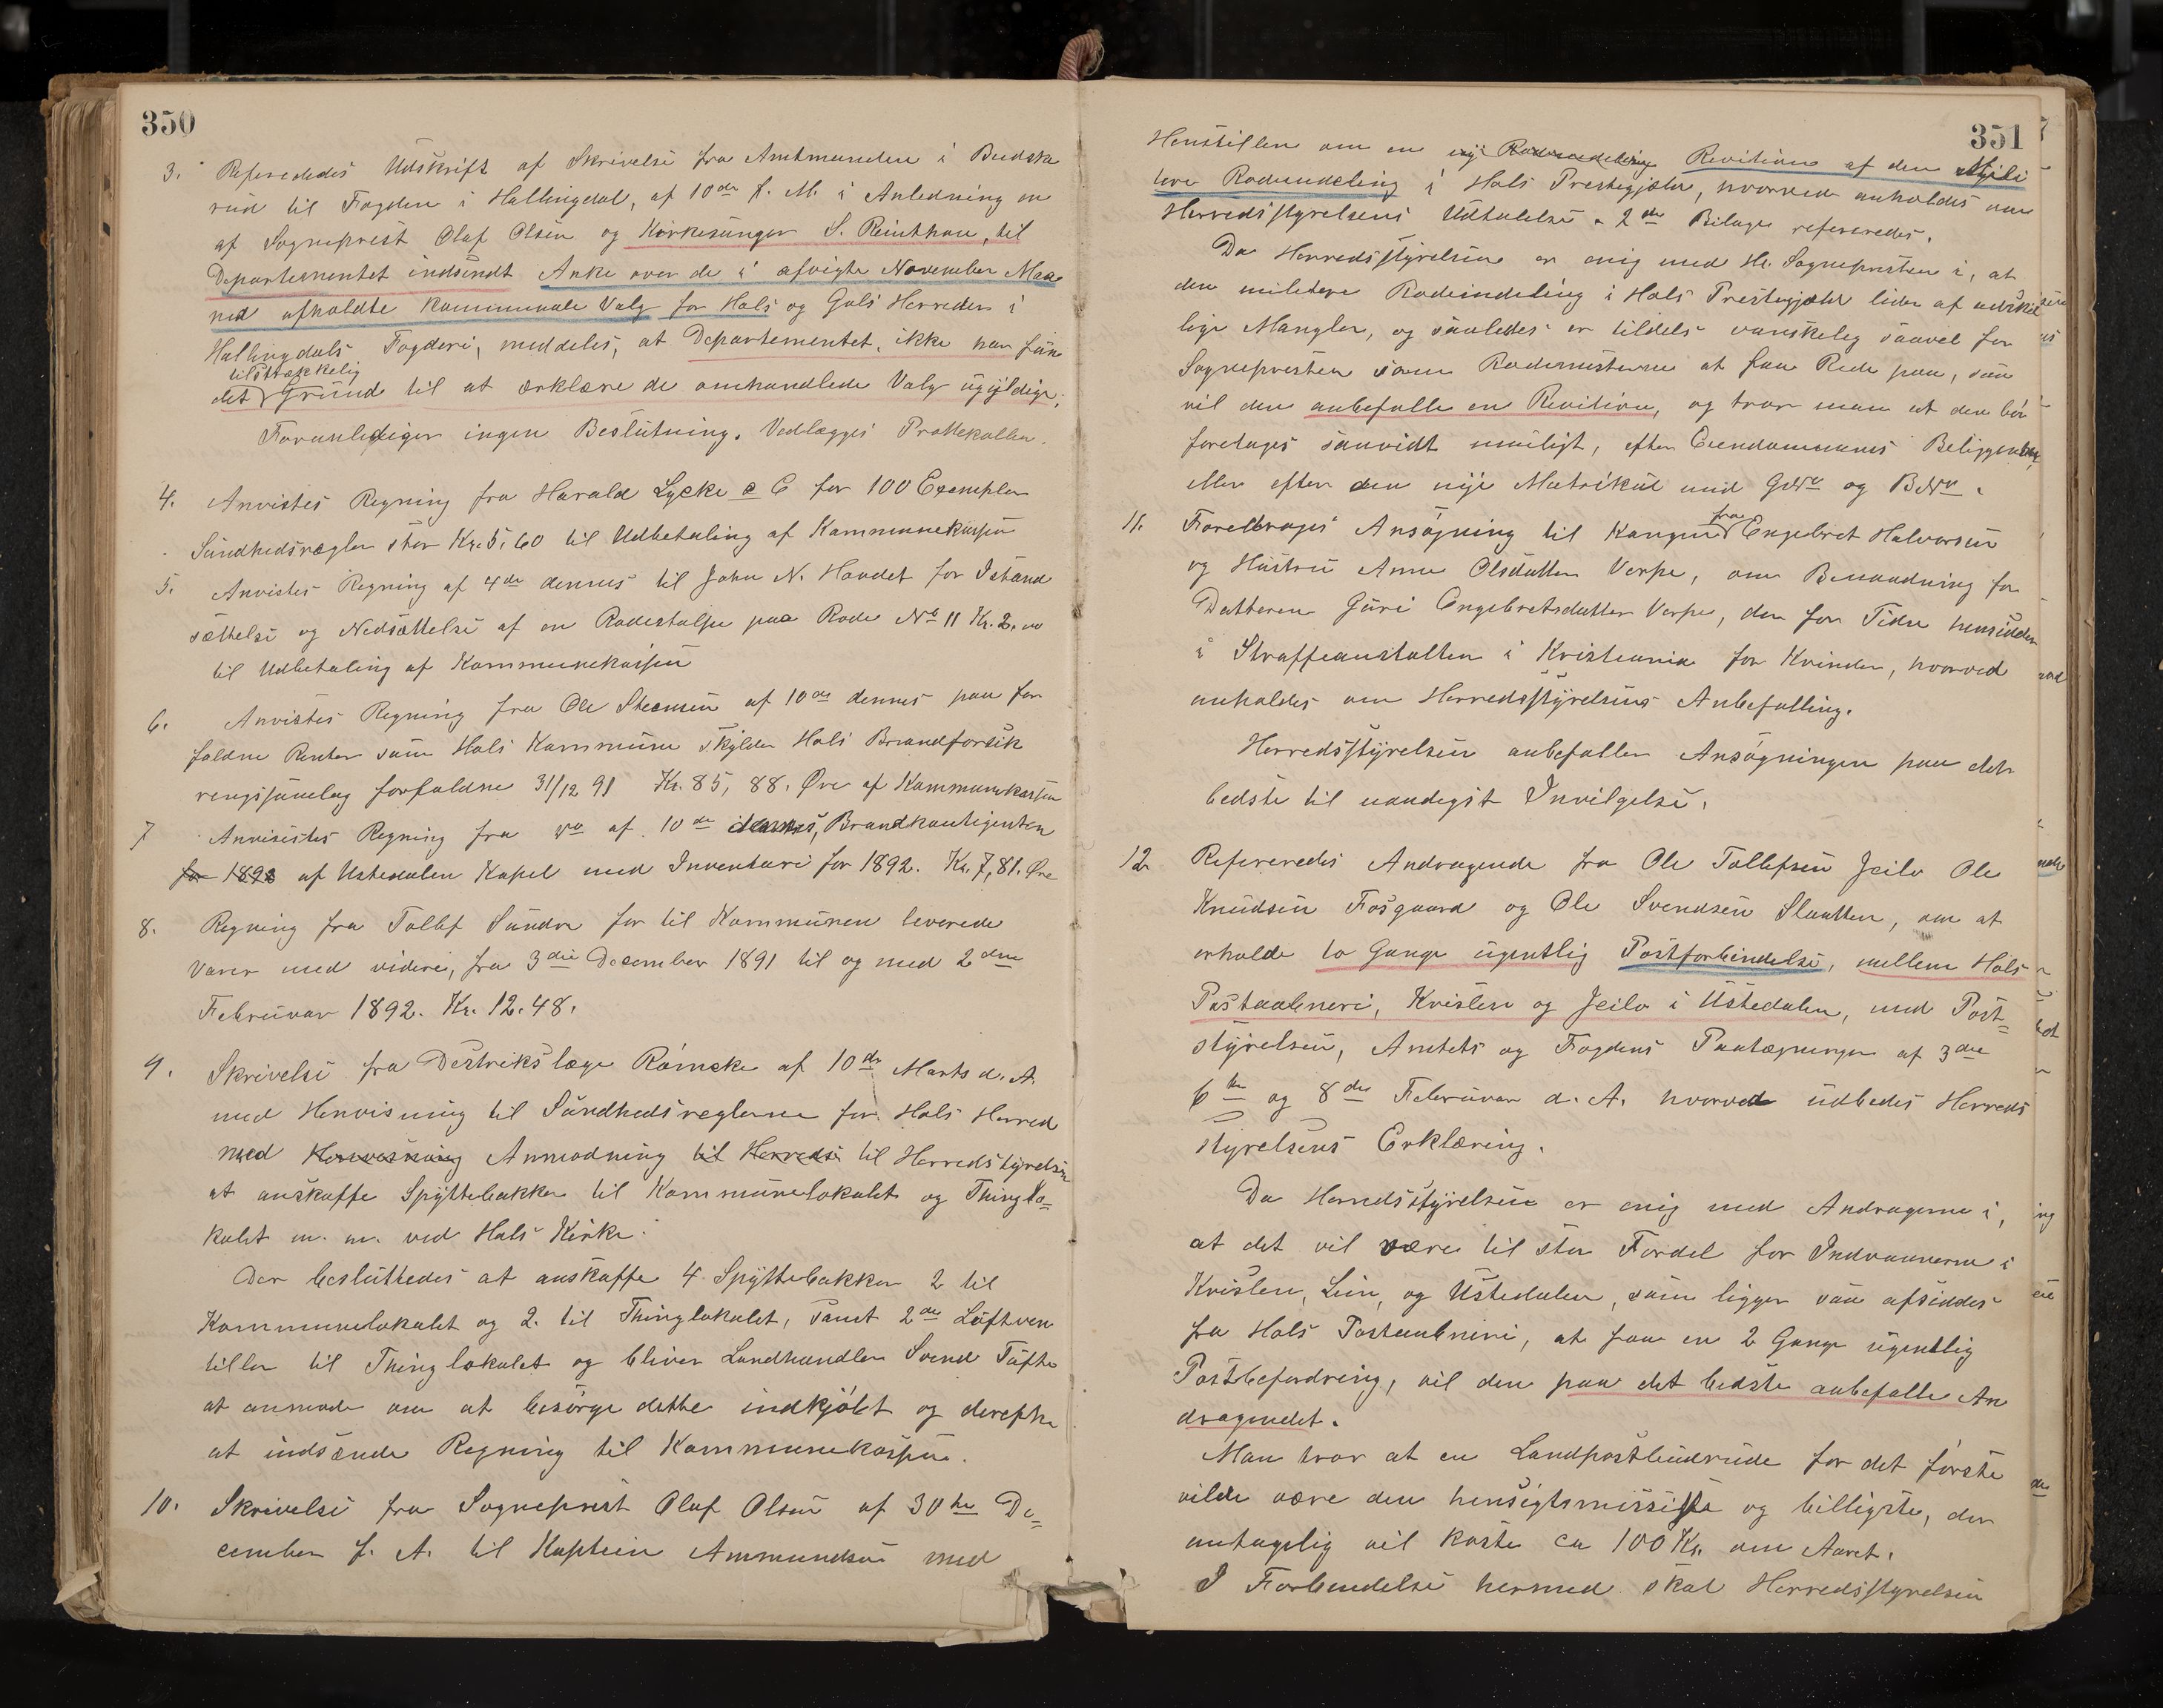 350
3. Refereredes Udskrift af Skrivelse fra Amtmanden i Buske
rud til Fogden i Hallingdal, af 10de f. M. i Anledning en
af Sogneprest Olaf Olsen og Kirkesanger S. Reinthon, til
Departementet indsendt Anke over de i afvigte November Maa
ned afholdte kommunale Valg for Hols og Gols Herreder i
Hallingdals Fogderi, meddeles, at Departementet, ikke har fun
tilstrækkelig
det Grund til at erklære de omhandlede Valg ugyldige.
Foranlediger ingen Beslutning. Vedlægges Protokollen.
4. Anvistes Regning fra Harald Lycke & C for 100 Exempler
Sundhedsregler stor Kr. 5,60 til Udbetaling af Kommunekassen
5. Anvistes Regning af 4de dennes til John N. Haudet for Istand
sættelse og Nedsættelse af en Rodestolpe paa Rode No 11 Kr. 2.00
til Udbetaling af Kommunekassen
6. Anvistes Regning fra Ole Steensen af 10de dennes paa for
faldne Renter som Hols Kommune skylder Hols Brandforsik
ringsjunelag forfaldne 31/12 91 Kr. 85, 88. Øre af Kommunekassen
7 Anvisistes Regning fra do af 10de dennes, Brandkontigenten
for 1892 af Ustedalen Kapel med Inventari for 1892. Kr. 7,81. Øre
8. Regning fra Tollef Sundre for til Kommunen leverede
Varer med videre, fra 3die December 1891 til og med 2den
Februar 1892. Kr. 12.48.
9. Skrivelse fra Destrikslæge Römcke af 10de Marts d. A.
med Henvisning til Sundhedsreglerne for Hols Herred
med Henvisning Anmodning til Herreds til Herredstyrelsen
at anskaffe Spyttebakker til Kommunelokalet og Thinglo=
kalet m. m. ved Hols Kirke.
Der besluttedes at anskaffe 4 Spyttebakker 2 til
Kommunelokalet og 2. til Thinglokalet, samt 2de Luftven
tiller til Thinglokalet og bliver Landhandler Svend Tufte
at anmode om at besørge dette indkjøbt og derefter
at indsænde Regning til Kommunekassen.
10. Skrivelse fra Sogneprest Olaf Olsen af 30te De=
cember f. A. til Kaptein Ammundsen med
351
Henstillen om en ny Rodeindeling Revition af den Mili
tere Rodeindeling i Hols Prestegjæld, hvorved anholdes om
Herredsstyrelsens Udtalelse. 2de Bilage refereredes.
Da Herredsstyrelsen er enig med Hr. Sognepresten i, at
den militere Rodeindeling i Hols Prestegjæld lider af adskil
lige Mangler, og saaledes er tildels vanskelig saavel for
Sognepresten som Rodemesterne at faa Rede paa, saa
vil den anbefalle en Revition, og tror man at den bør
foretages saavidt muligt, efter Eiendommenes Beliggenhed,
eller efter den nye Matrikul med GNo og BNo.
11. Foredroges Ansøgning til Kongen fra Engebret Halvorsen
og Hustru Anne Olsdatter Verpe, om Benaadning for
Datteren Guri Engebretsdatter Verpe, der for Tiden hensidder
i Straffeanstalten i Kristiania for Kvinder, hvorved
anholdes om Herredsstyrelsens Anbefalling.
Herredsstyrelsen anbefaller Ansøgningen paa det
bedste til naadigst Invilgelse.
12 Refereredes Andragende fra Ole Tollefsen Jeilo Ole
Knudsen Fosgaard og Ole Svendsen Slaatten, om at
erholde to Gange ugentlig Postforbindelse, mellem Hols
Postaabneri, Kvislen og Jeilo i Ustedalen, med Post=
styrelsen, Amtets og Fogdens Paategninger af 3die
6te og 8de Februar d. A. hvorved udbedes Herreds
styrelsens Erklæring.
Da Herredsstyrelsen er enig med Andragerne i,
at det vil være til stor Fordel for Indvaanerne i
Kvislen, Lien, og Ustedalen, som ligger saa afsiddes
fra Hols Postaabneri, at faa en 2 Gange ugentlig
Postbefordring, vil den paa det bedste anbefalle An
dragendet.
Man tror at en Landpostbudrude for det første
vilde være den hensigtsmæssigste og billigste, der
antagelig vil koste ca 100 Kr. om Aaret.
I Forbindelse hermed skal Herredsstyrelsen